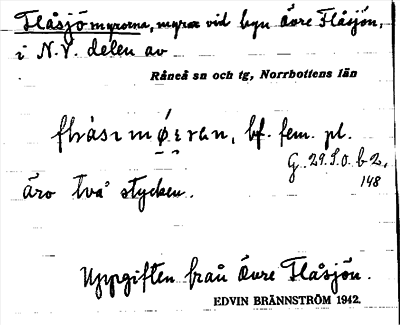 Flåsjömyrorna, myrar vid byn Övre Flåsjön,
i N.V. delen av
Råneå sn och tg, Norrbottens län
bf. fem. pl.
G. 29. S.O. b 2,
148
äro två stycken.
Uppgiften från Övre Flåsjön.
EDVIN BRÄNNSTRÖM 1942.